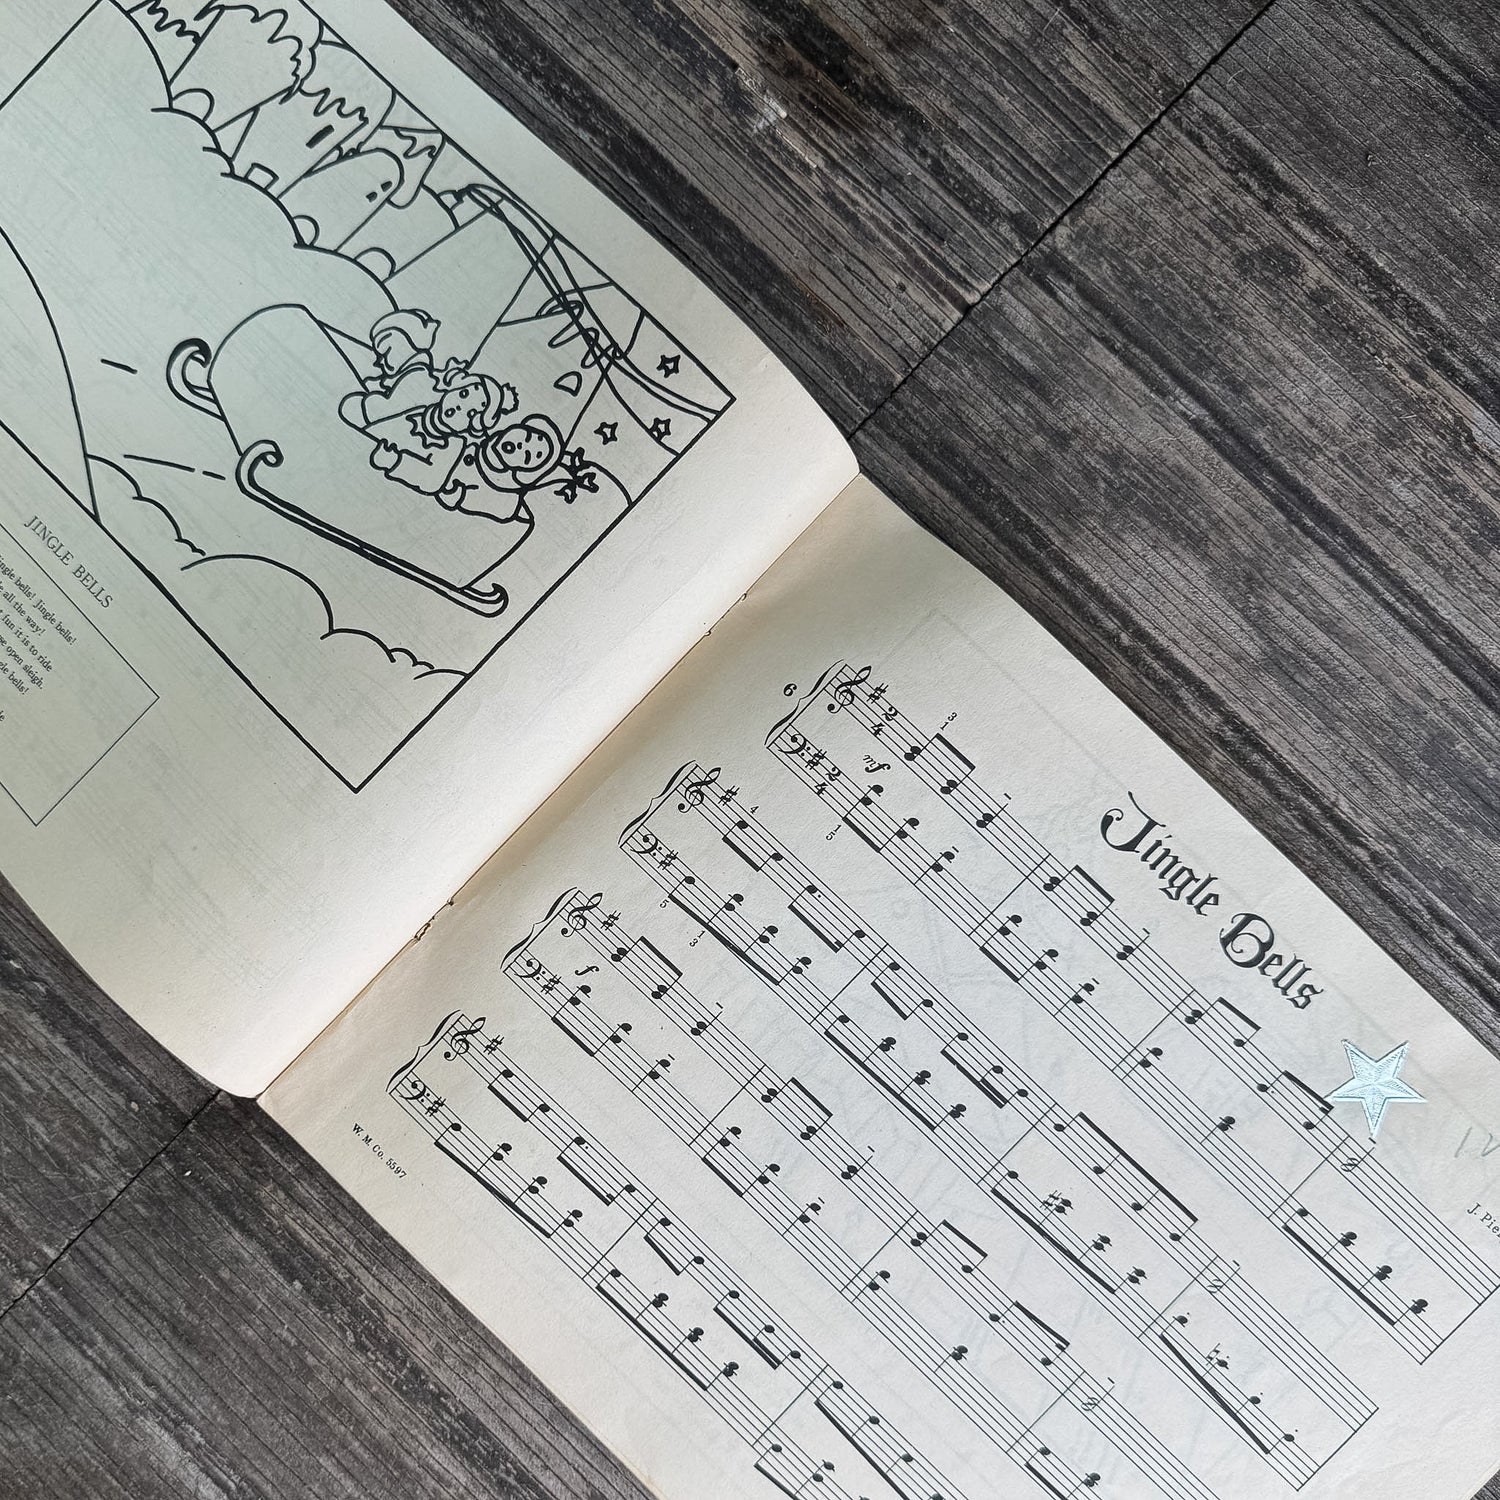 JINGLE BELLS
ingle bells! Jingle bells!
all the way!
fun it is to ride
open sleigh.
gle bells!
Jingle Bells
J. Pie
6
3
1
2
4
mf
2
4
1
5
4
5
1
3
f
W. M. Co. 5597